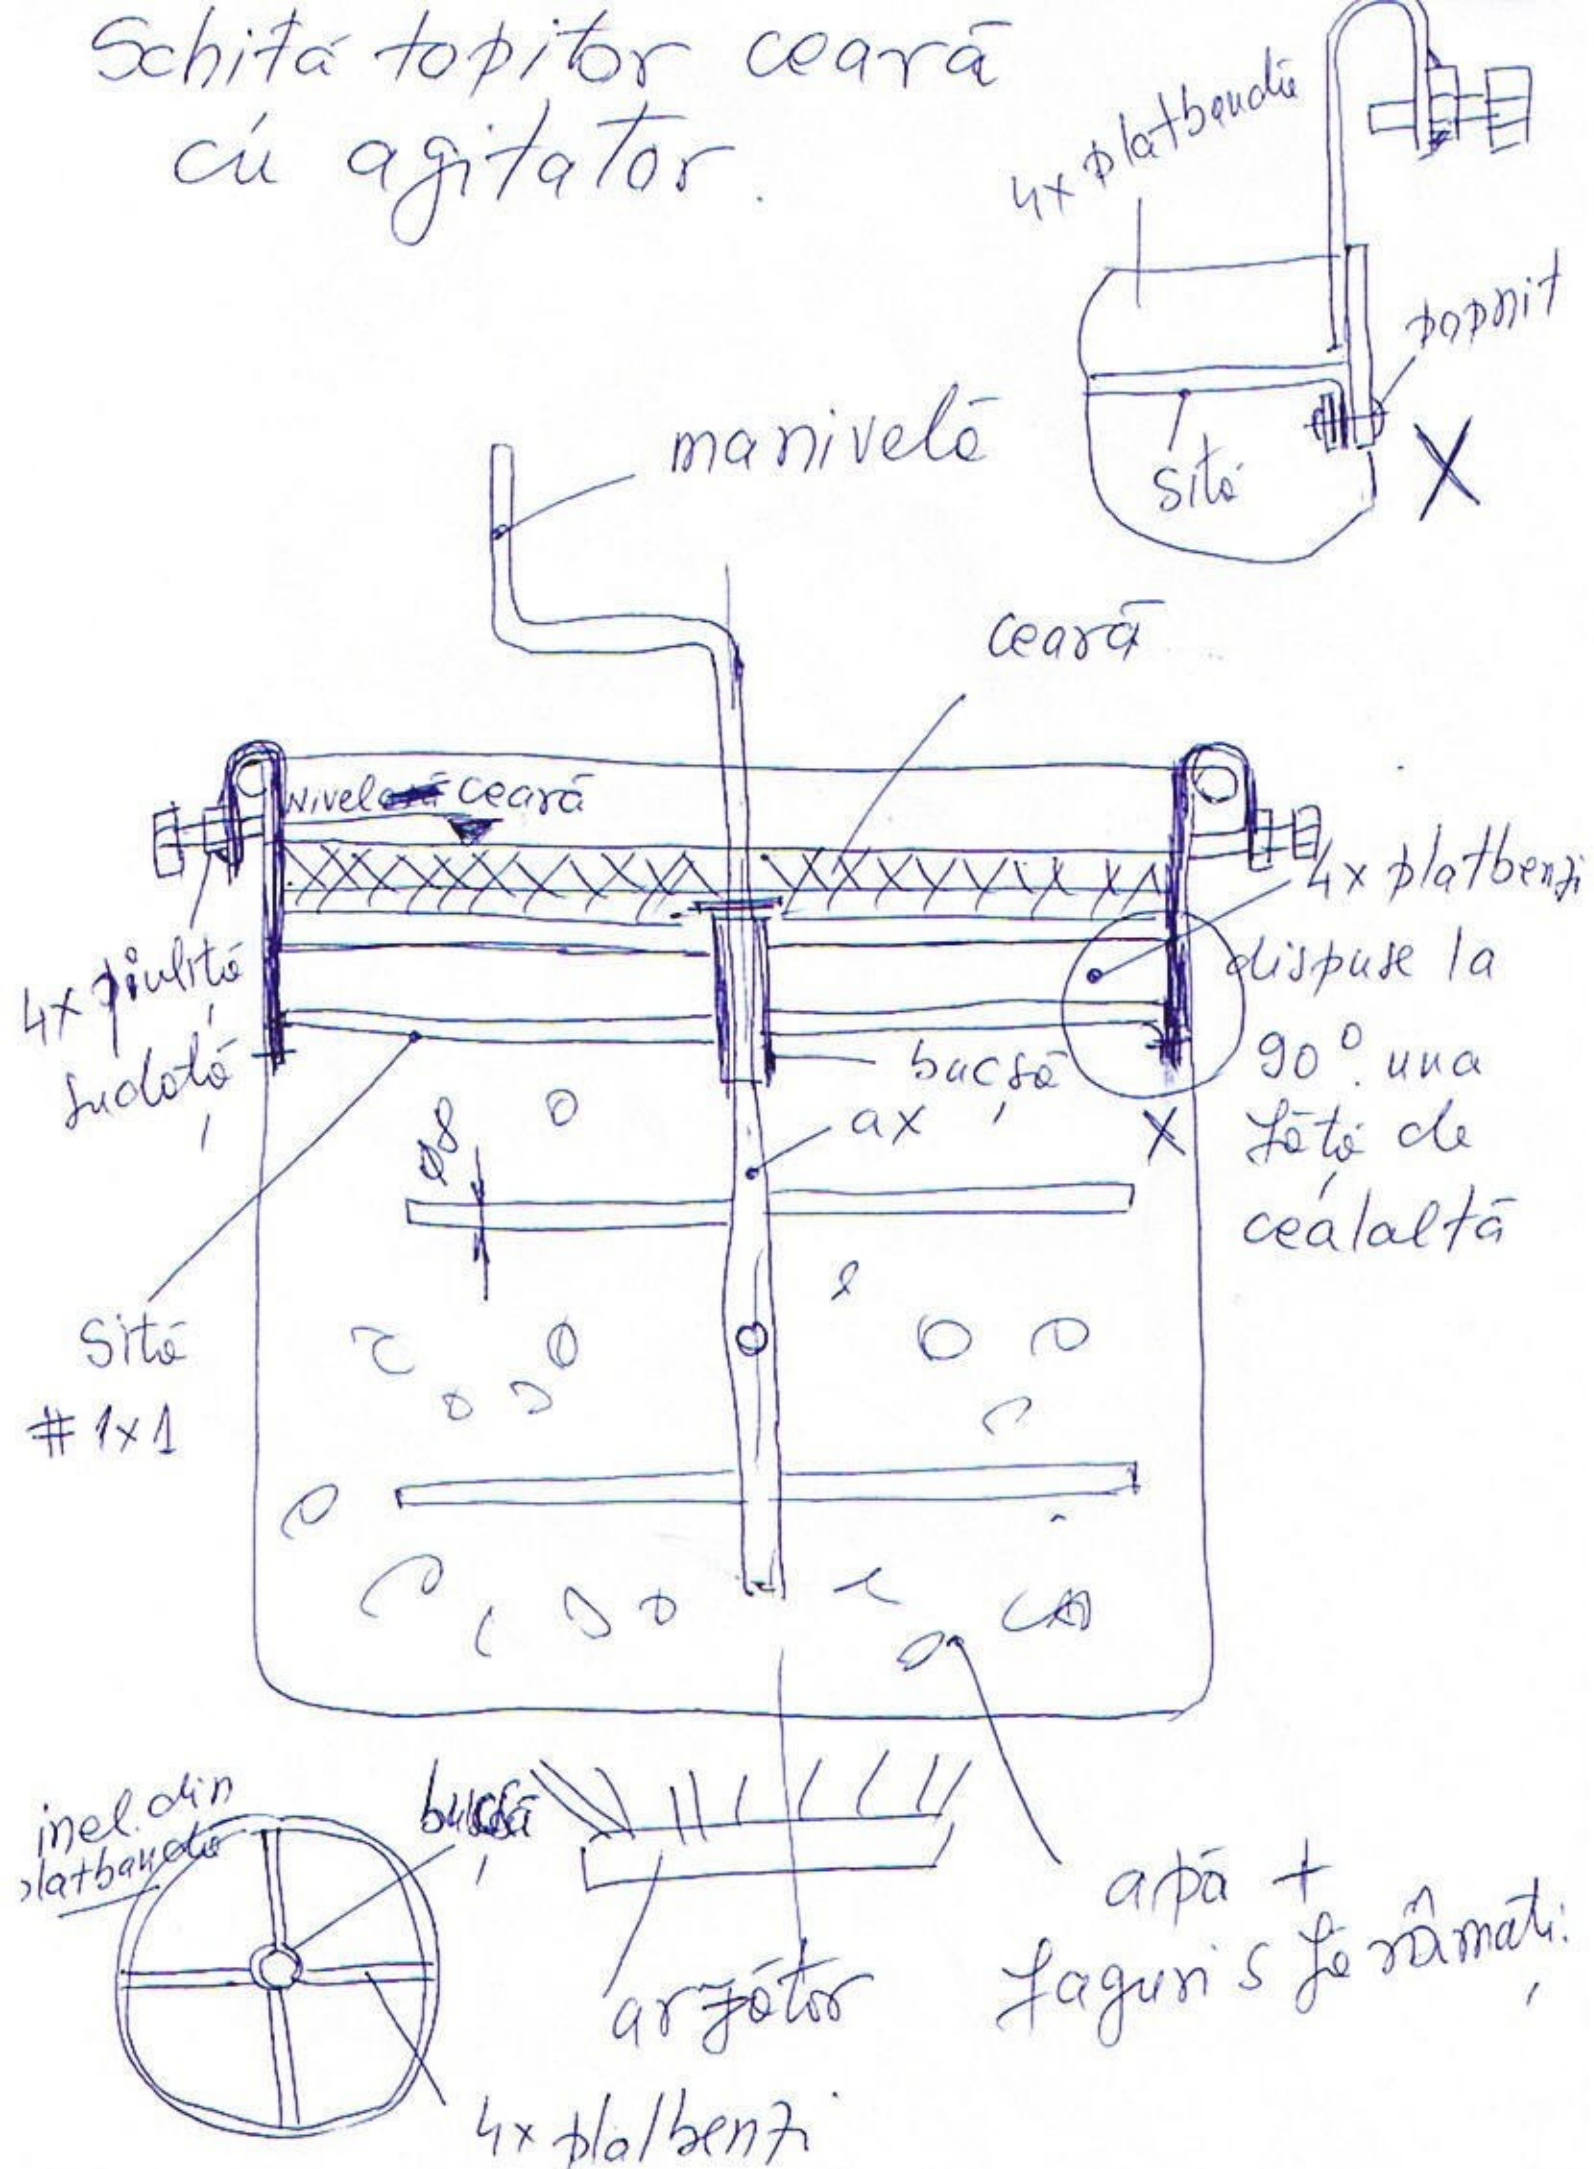 Schiță topitor ceară
cu agitator.
4x platbandă
popnit
sită
X
manivelă
ceară
Nivel ceară
4x platbenzi
dispuse la
90° una
față de
cealaltă
4x piuliță
sudată
bucșă
ax
X
ø8
Sită
# 1x1
inel din
platbandă
bucșă
arzător
apă +
faguri sfărâmați
4x platbenzi